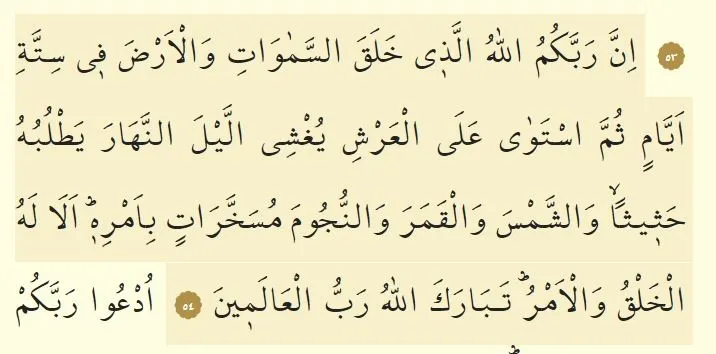 ٥٣ اِنَّ رَبَّكُمُ اللهُ الَّذٖى خَلَقَ السَّمٰوَاتِ وَالْاَرْضَ فٖى سِتَّةِ
اَيَّامٍ ثُمَّ اسْتَوٰى عَلَى الْعَرْشِ يُغْشِى الَّيْلَ النَّهَارَ يَطْلُبُهُ
حَثٖيثاًۙ وَالشَّمْسَ وَالْقَمَرَ وَالنُّجُومَ مُسَخَّرَاتٍ بِاَمْرِهٖؕ اَلَا لَهُ
الْخَلْقُ وَالْاَمْرُؕ تَبَارَكَ اللهُ رَبُّ الْعَالَمٖينَ ٥٤ اُدْعُوا رَبَّكُمْ